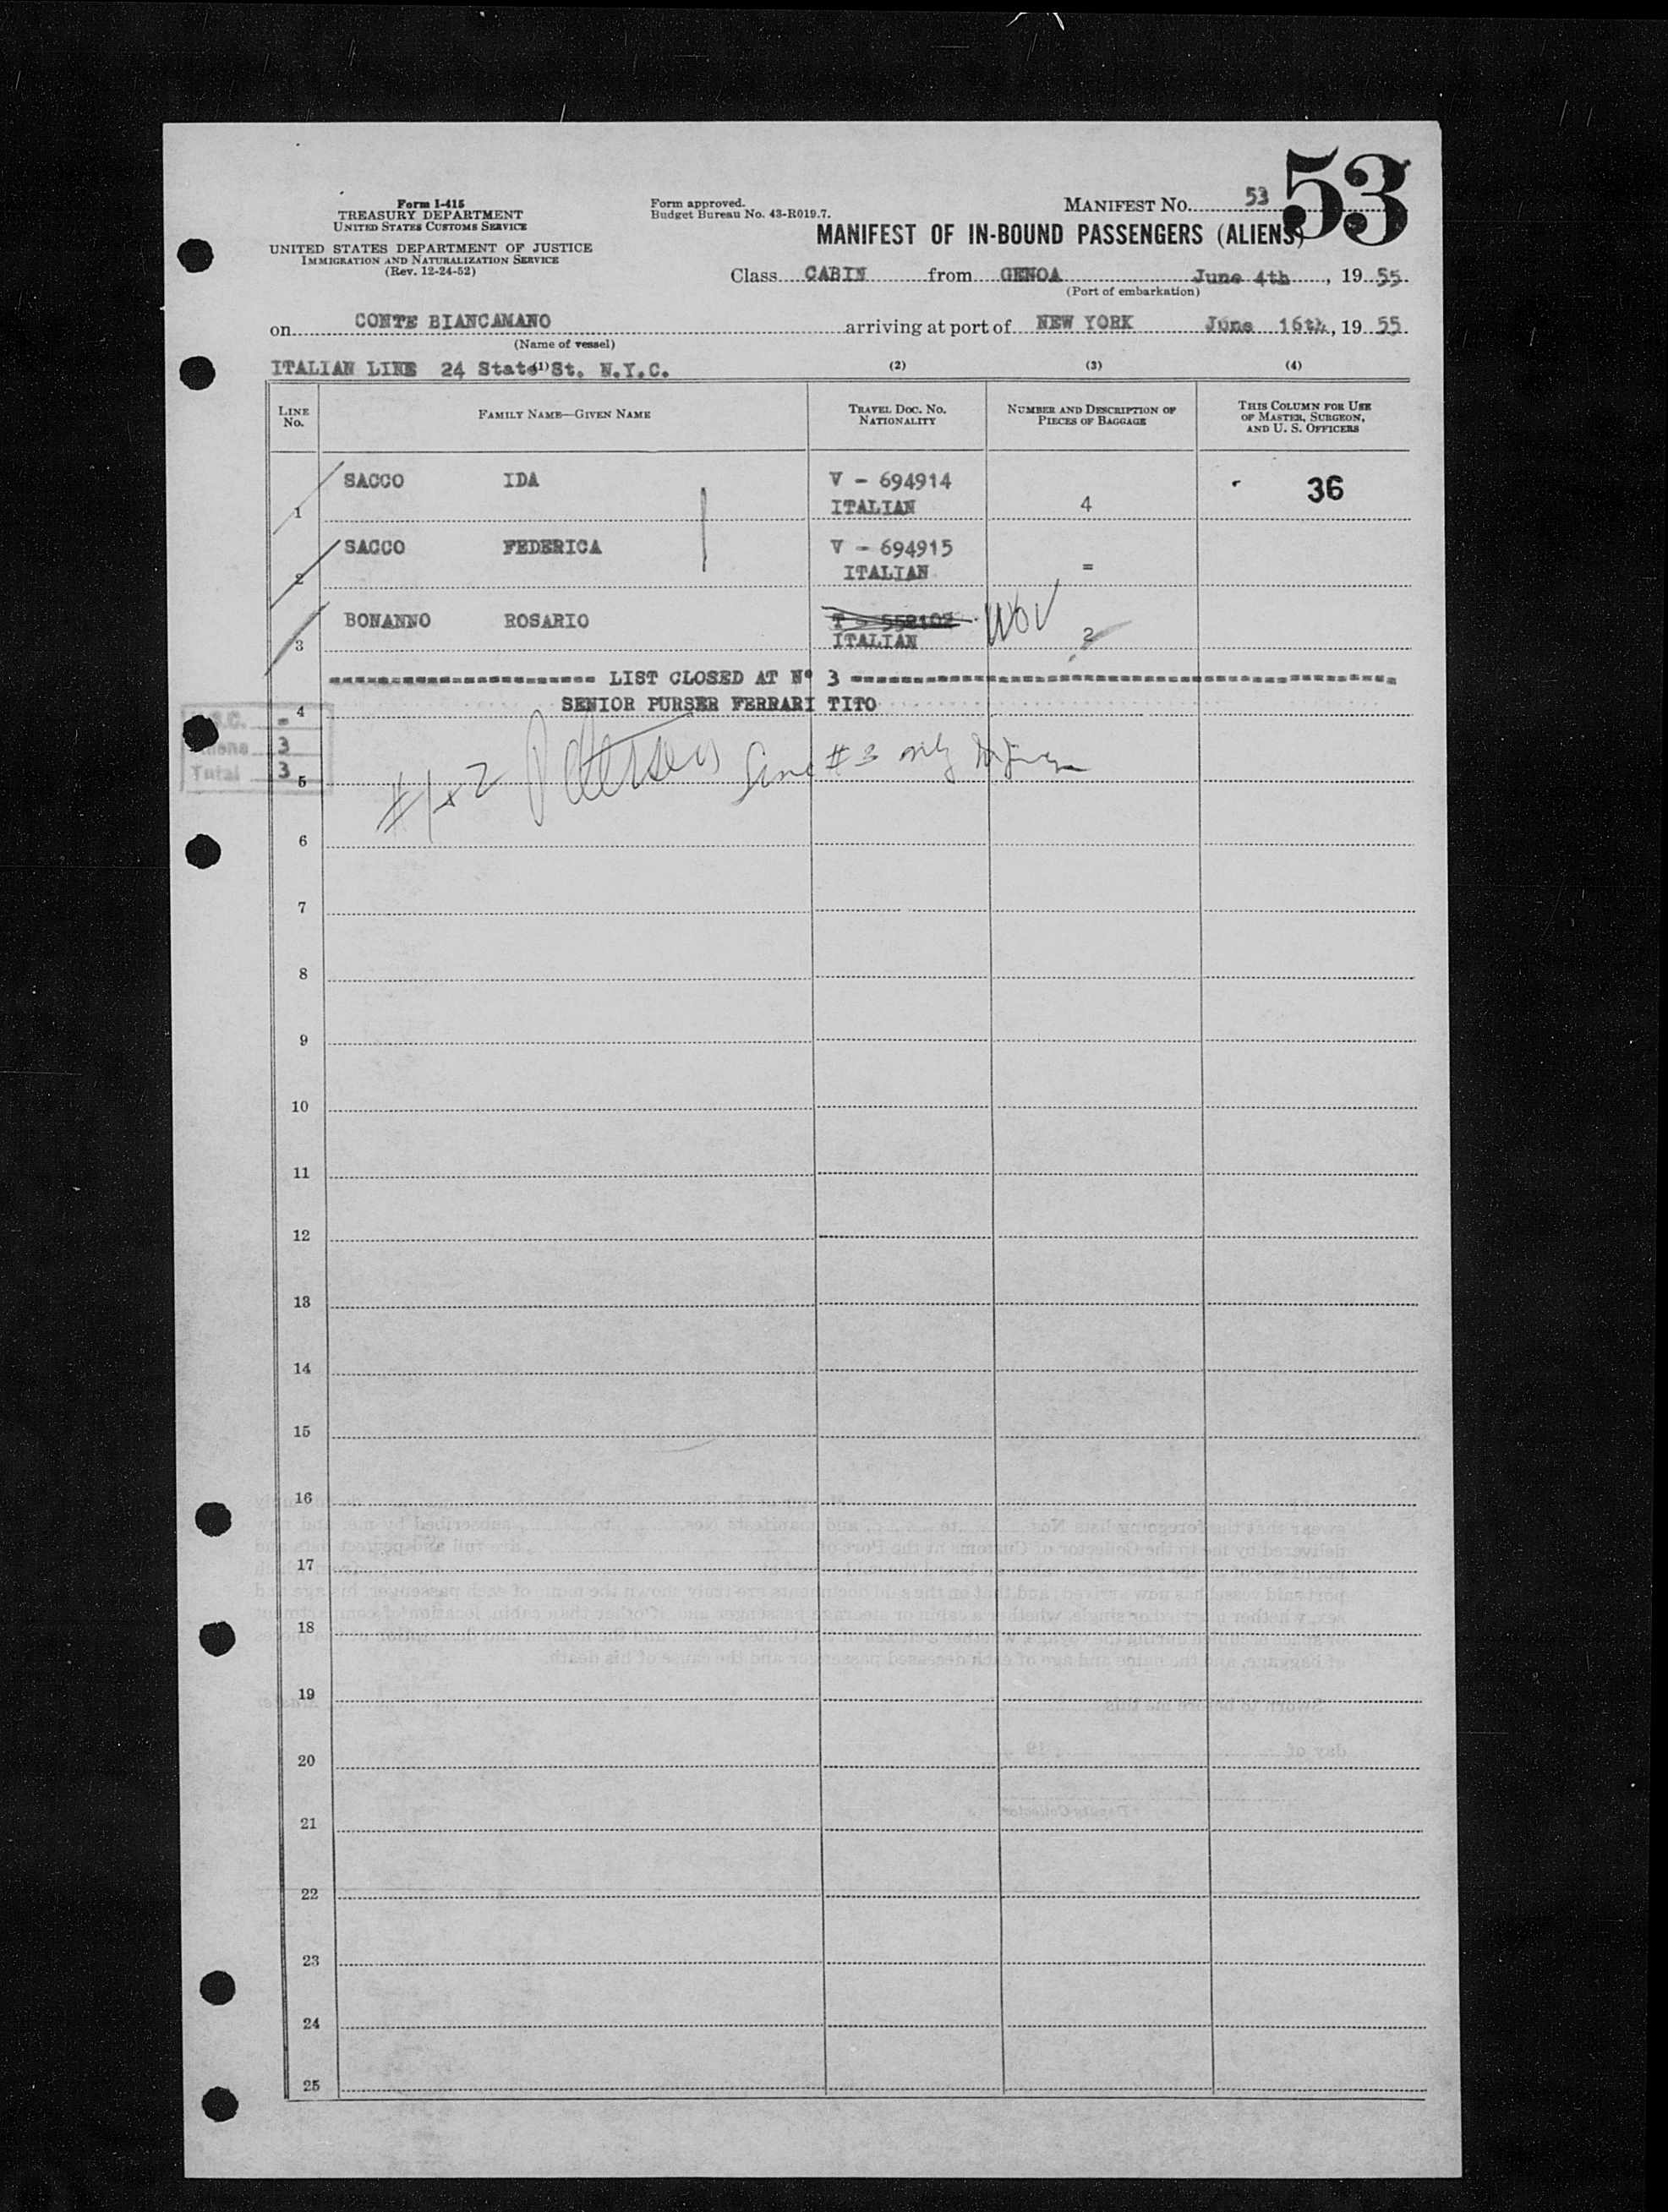 53
Form I-415
TREASURY DEPARTMENT
UNITED STATES CUSTOMS SERVICE
UNITED STATES DEPARTMENT OF JUSTICE
IMMIGRATION AND NATURALIZATION SERVICE
(Rev. 12-24-52)
Form approved.
Budget Bureau No. 43-R019.7.
MANIFEST NO. 53
MANIFEST OF IN-BOUND PASSENGERS (ALIENS)
Class CABIN from GENOA June 4th, 1955.
(Port of embarkation)
on CONTE BIANCAMANO arriving at port of NEW YORK June 16th, 1955.
(Name of vessel)
ITALIAN LINE 24 State St. N.Y.C.
(1) (2) (3) (4)
LINE No. FAMILY NAME—GIVEN NAME TRAVEL DOC. NO. NATIONALITY NUMBER AND DESCRIPTION OF PIECES OF BAGGAGE THIS COLUMN FOR USE OF MASTER, SURGEON, AND U. S. OFFICERS
SACCO IDA V - 694914 36
1 ITALIAN 4
SACCO FEDERICA V - 694915
2 ITALIAN =
BONANNO ROSARIO
3 ITALIAN 2
LIST CLOSED AT Nº 3
SENIOR PURSER FERRARI TITO
4
3
Total 3
#1 & 2 Line #3 only
5
6
7
8
9
10
11
12
13
14
15
16
17
18
19
20
21
22
23
24
25